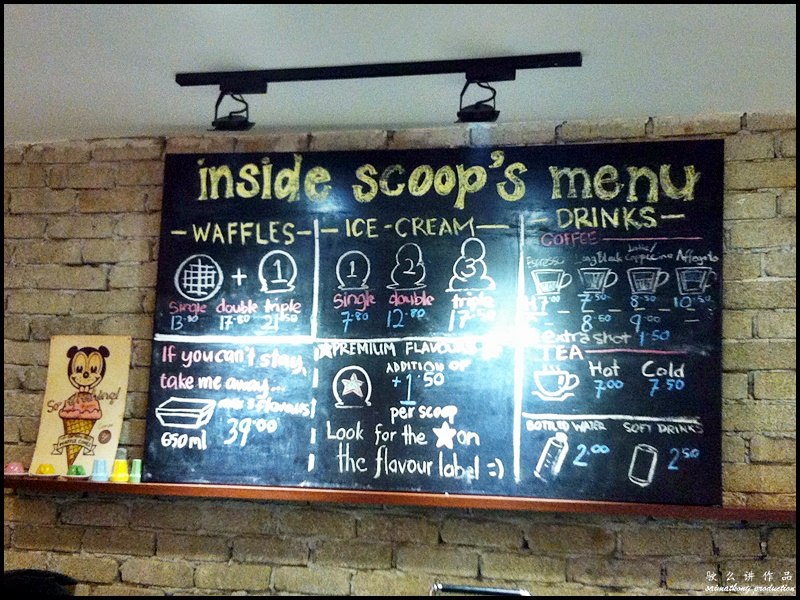 inside scoop's menu
- WAFFLES -
+ 1
Single double triple
13.80 17.80 21.50
If you can't stay,
take me away...
max 3 flavours!
650ml 39.00
- ICE-CREAM -
1 2 3
Single double triple
7.80 12.80 17.50
★PREMIUM FLAVOUR
ADDITION OF
+1.50
per scoop
Look for the ★ on
the flavour label =)
- DRINKS -
COFFEE
Espresso Long Black Latte/Cappuccino Affogato
7.00 7.50 8.50 10.50
- 8.50 9.00 -
extra shot 1.50
TEA
Hot Cold
7.00 7.50
BOTTLED WATER SOFT DRINKS
2.00 2.50
So refreshing!
sabmatkong.production